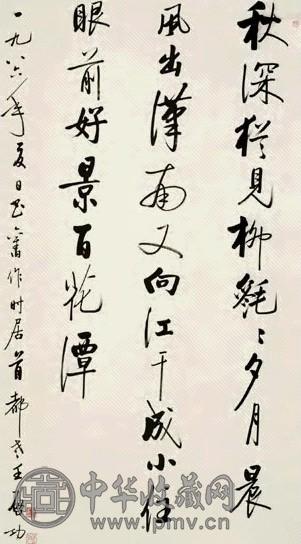 秋深猶見柳毿〻夕月晨
風出漢南又向江干成小住
眼前好景百花潭
一九八六年夏日书舊作时居首都 啓功
中华收藏网
www.pmv.cn